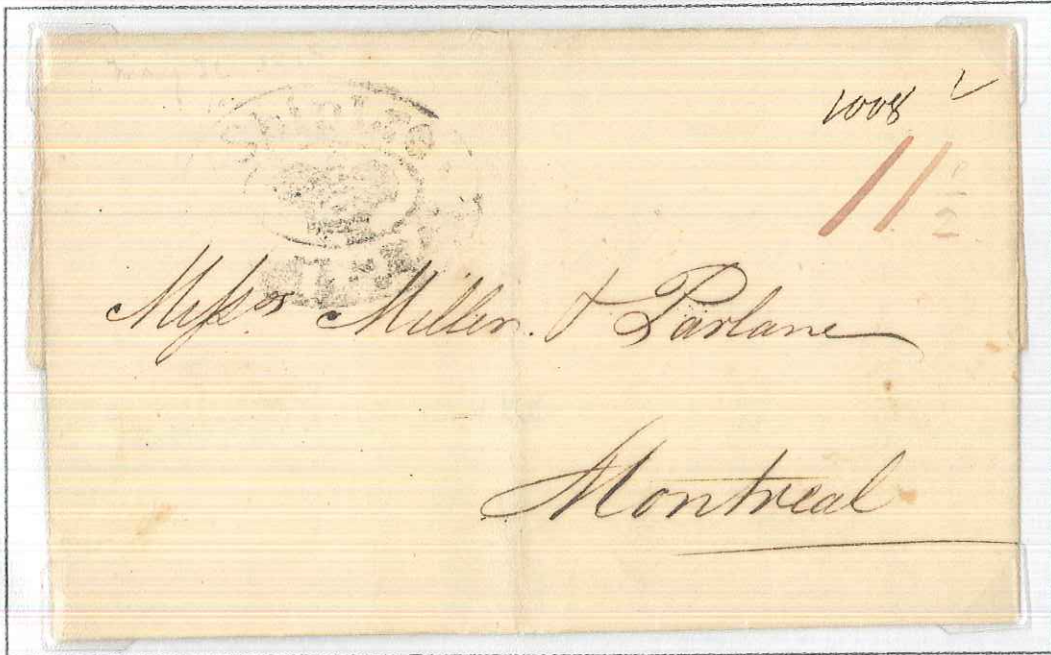 1008
11
1
2
Messrs Miller & Parlane
Montreal